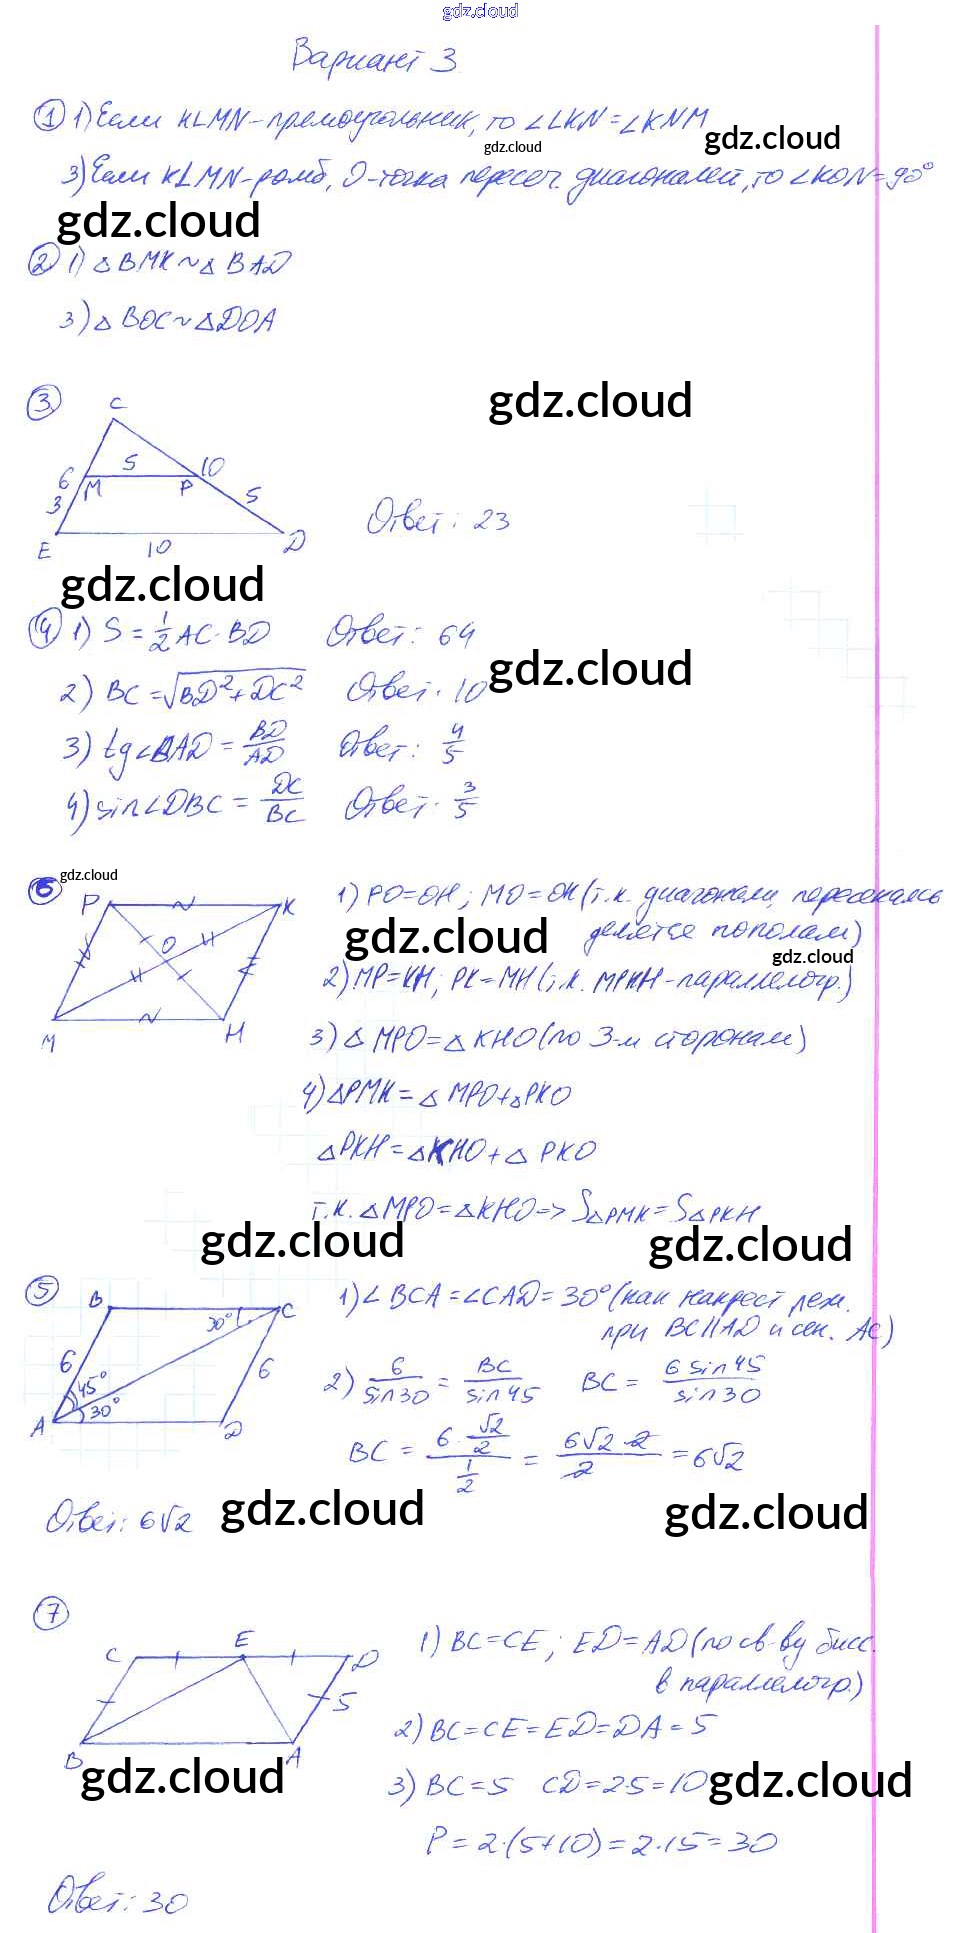 gdz.cloud
Вариант 3
① 1) Если KLMN - прямоугольник, то ∠LKN = ∠KNM
gdz.cloud
gdz.cloud
3) Если KLMN - ромб, О - точка пересеч. диагоналей, то ∠KON = 90°
gdz.cloud
② 1) △ BMK ~ △ BAD
3) △ BOC ~ △ DOA
③
gdz.cloud
C
6 5 10
M P
3 5
E 10 D
Ответ: 23
gdz.cloud
④ 1) S = 1/2 AC · BD Ответ: 64
gdz.cloud
2) BC = √(BD² + DC²) Ответ: 10
3) tg∠BAD = BD/AD Ответ: 4/5
4) sin∠DBC = DC/BC Ответ: 3/5
gdz.cloud
P K
O
M H
1) PO = OH; MO = OK (т.к. диагонали, пересекаясь
gdz.cloud
делятся пополам)
gdz.cloud
2) MP = KH; PK = MH (т.к. MPKH - параллелогр.)
3) △ MPO = △ KHO (по 3-м сторонам)
4) △PMK = △ MPO + △PKO
△PKH = △KHO + △ PKO
т.к. △MPO = △KHO => S△PMK = S△PKH
gdz.cloud
gdz.cloud
⑤
B C
30°
6 6
45°
30°
A D
1) ∠BCA = ∠CAD = 30° (как накрест леж.
при BC || AD и сек. AC)
2) 6/sin30 = BC/sin45 BC = 6 sin45/sin30
BC = (6 · √2/2)/(1/2) = 6√2 · 2/2 = 6√2
Ответ: 6√2
gdz.cloud
gdz.cloud
⑦
C E D
5
B A
1) BC = CE; ED = AD (по св-ву бисс.
в параллелогр.)
2) BC = CE = ED = DA = 5
gdz.cloud
3) BC = 5 CD = 2·5 = 10
gdz.cloud
P = 2·(5+10) = 2·15 = 30
Ответ: 30